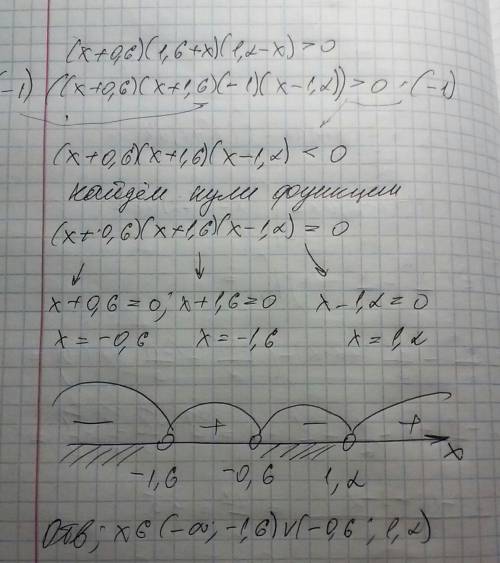 (x+0,6)(1,6+x)(1,2-x)>0
(-1) ((x+0,6)(x+1,6)(-1)(x-1,2))>0 ·(-1)
(x+0,6)(x+1,6)(x-1,2) < 0
найдём нули функции
(x+0,6)(x+1,6)(x-1,2) = 0
x+0,6=0; x+1,6=0 x-1,2=0
x=-0,6 x=-1,6 x=1,2
- + - +
-1,6 -0,6 1,2 x
Отв; x∈(-∞; -1,6)∨(-0,6; 1,2)